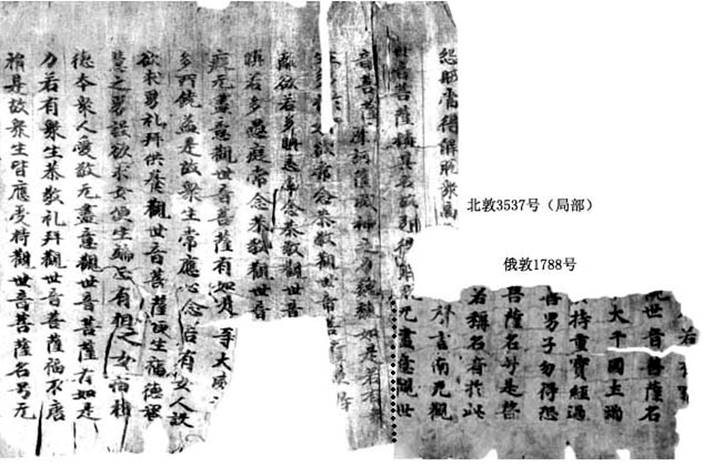 北敦3537号（局部）
俄敦1788号
若有
世音菩薩名
大千國土滿
持重寶經過
男子勿得恐
菩薩名号是
若稱名者於此
聲言南无觀
怨賊當得解脫衆商
世音菩薩稱其名故即得解脫 无盡意觀世
音菩薩摩訶薩威神之力巍巍如是若有衆
欲常念恭敬觀世音菩薩便得
離欲若多瞋恚常念恭敬觀世音菩
瞋若多愚癡常念恭敬觀世音
癡无盡意觀世音菩薩有如是等大威
多所饒益是故衆生常應心念若有女人設
欲求男礼拜供養觀世音菩薩便生福德智
慧之男設欲求女便生端正有相之女宿植
德本衆人愛敬无盡意觀世音菩薩有如是
力若有衆生恭敬礼拜觀世音菩薩福不唐
捐是故衆生皆應受持觀世音菩薩名号无